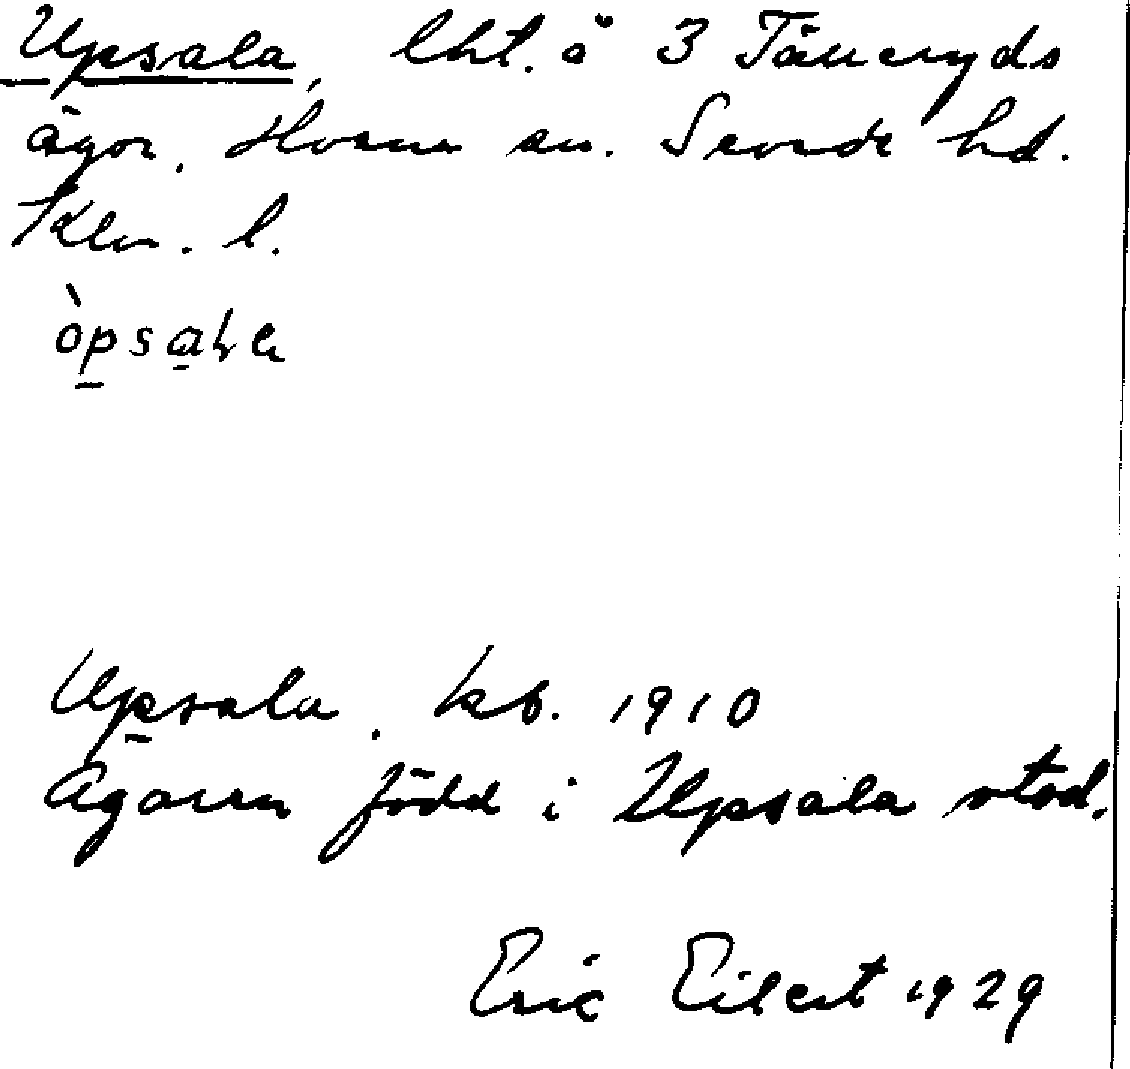 Upsala, lht. å 3 Täueryds
ägor. Horns sn. Sevede hd.
Klm. l.
òpsala
Upsala. kb. 1910
Ägaren född i Upsala stad.
Eric Eilert 1929